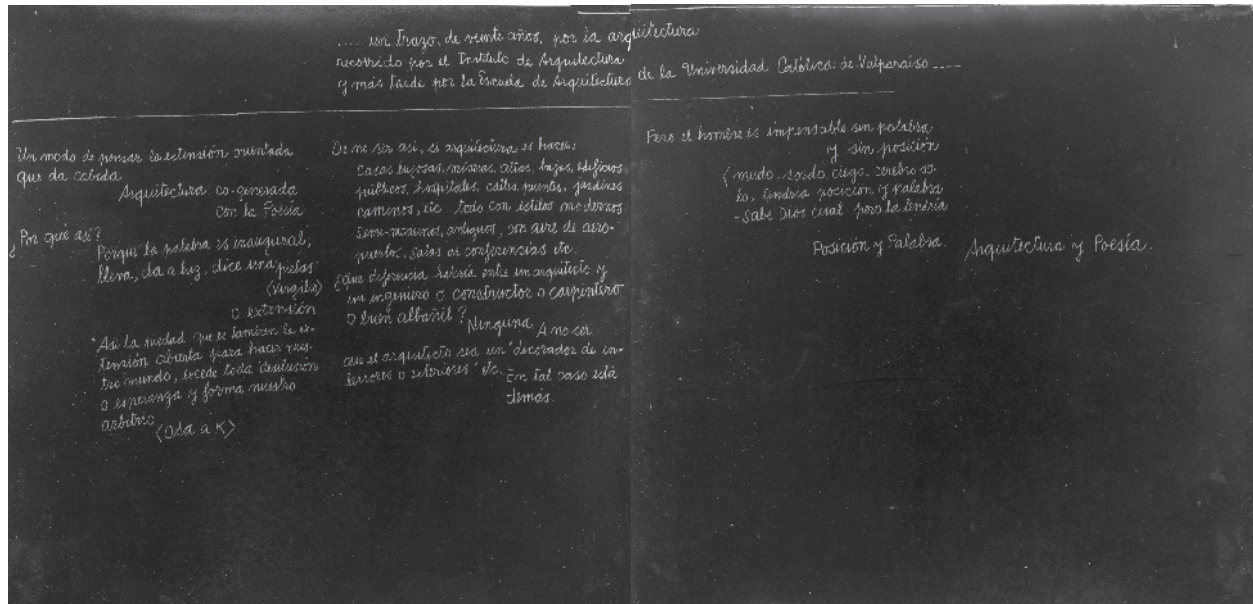 .... un trazo, de veinte años, por la arquitectura
recorrido por el Instituto de Arquitectura
y más tarde por la Escuela de Arquitectura de la Universidad Católica de Valparaíso ....
Un modo de pensar la extensión orientada
que da cabida
Arquitectura co-generada
con la Poesía
¿Por qué así?
Porque la palabra es inaugural,
lleva, da a luz, dice una pietas
(Virgilio)
o extensión
"Así la piedad que es también la ex-
tensión abierta para hacer nues-
tro mundo, excede toda desilusión
o esperanza y forma nuestro
arbitrio
(Oda a K)
De no ser así, si arquitectura es hacer:
casas lujosas, míseras, altas, bajas, edificios
públicos, hospitales, calles, puentes, jardines
caminos, etc todo con estilos modernos
semi-modernos, antiguos, con aire de aero-
puertos, salas de conferencias etc.
¿Que diferencia habría entre un arquitecto y
un ingeniero o constructor o carpintero
o buen albañil?
Ninguna A no ser
que el arquitecto sea un "decorador de in-
teriores o exteriores" etc.
En tal caso está
demás.
Pero el hombre es impensable sin palabra
y sin posición
(mudo, sordo, ciego, cerebro so-
lo, tendría posición y palabra
- sabe Dios cual pero la tendría
Posición y Palabra. Arquitectura y Poesía.